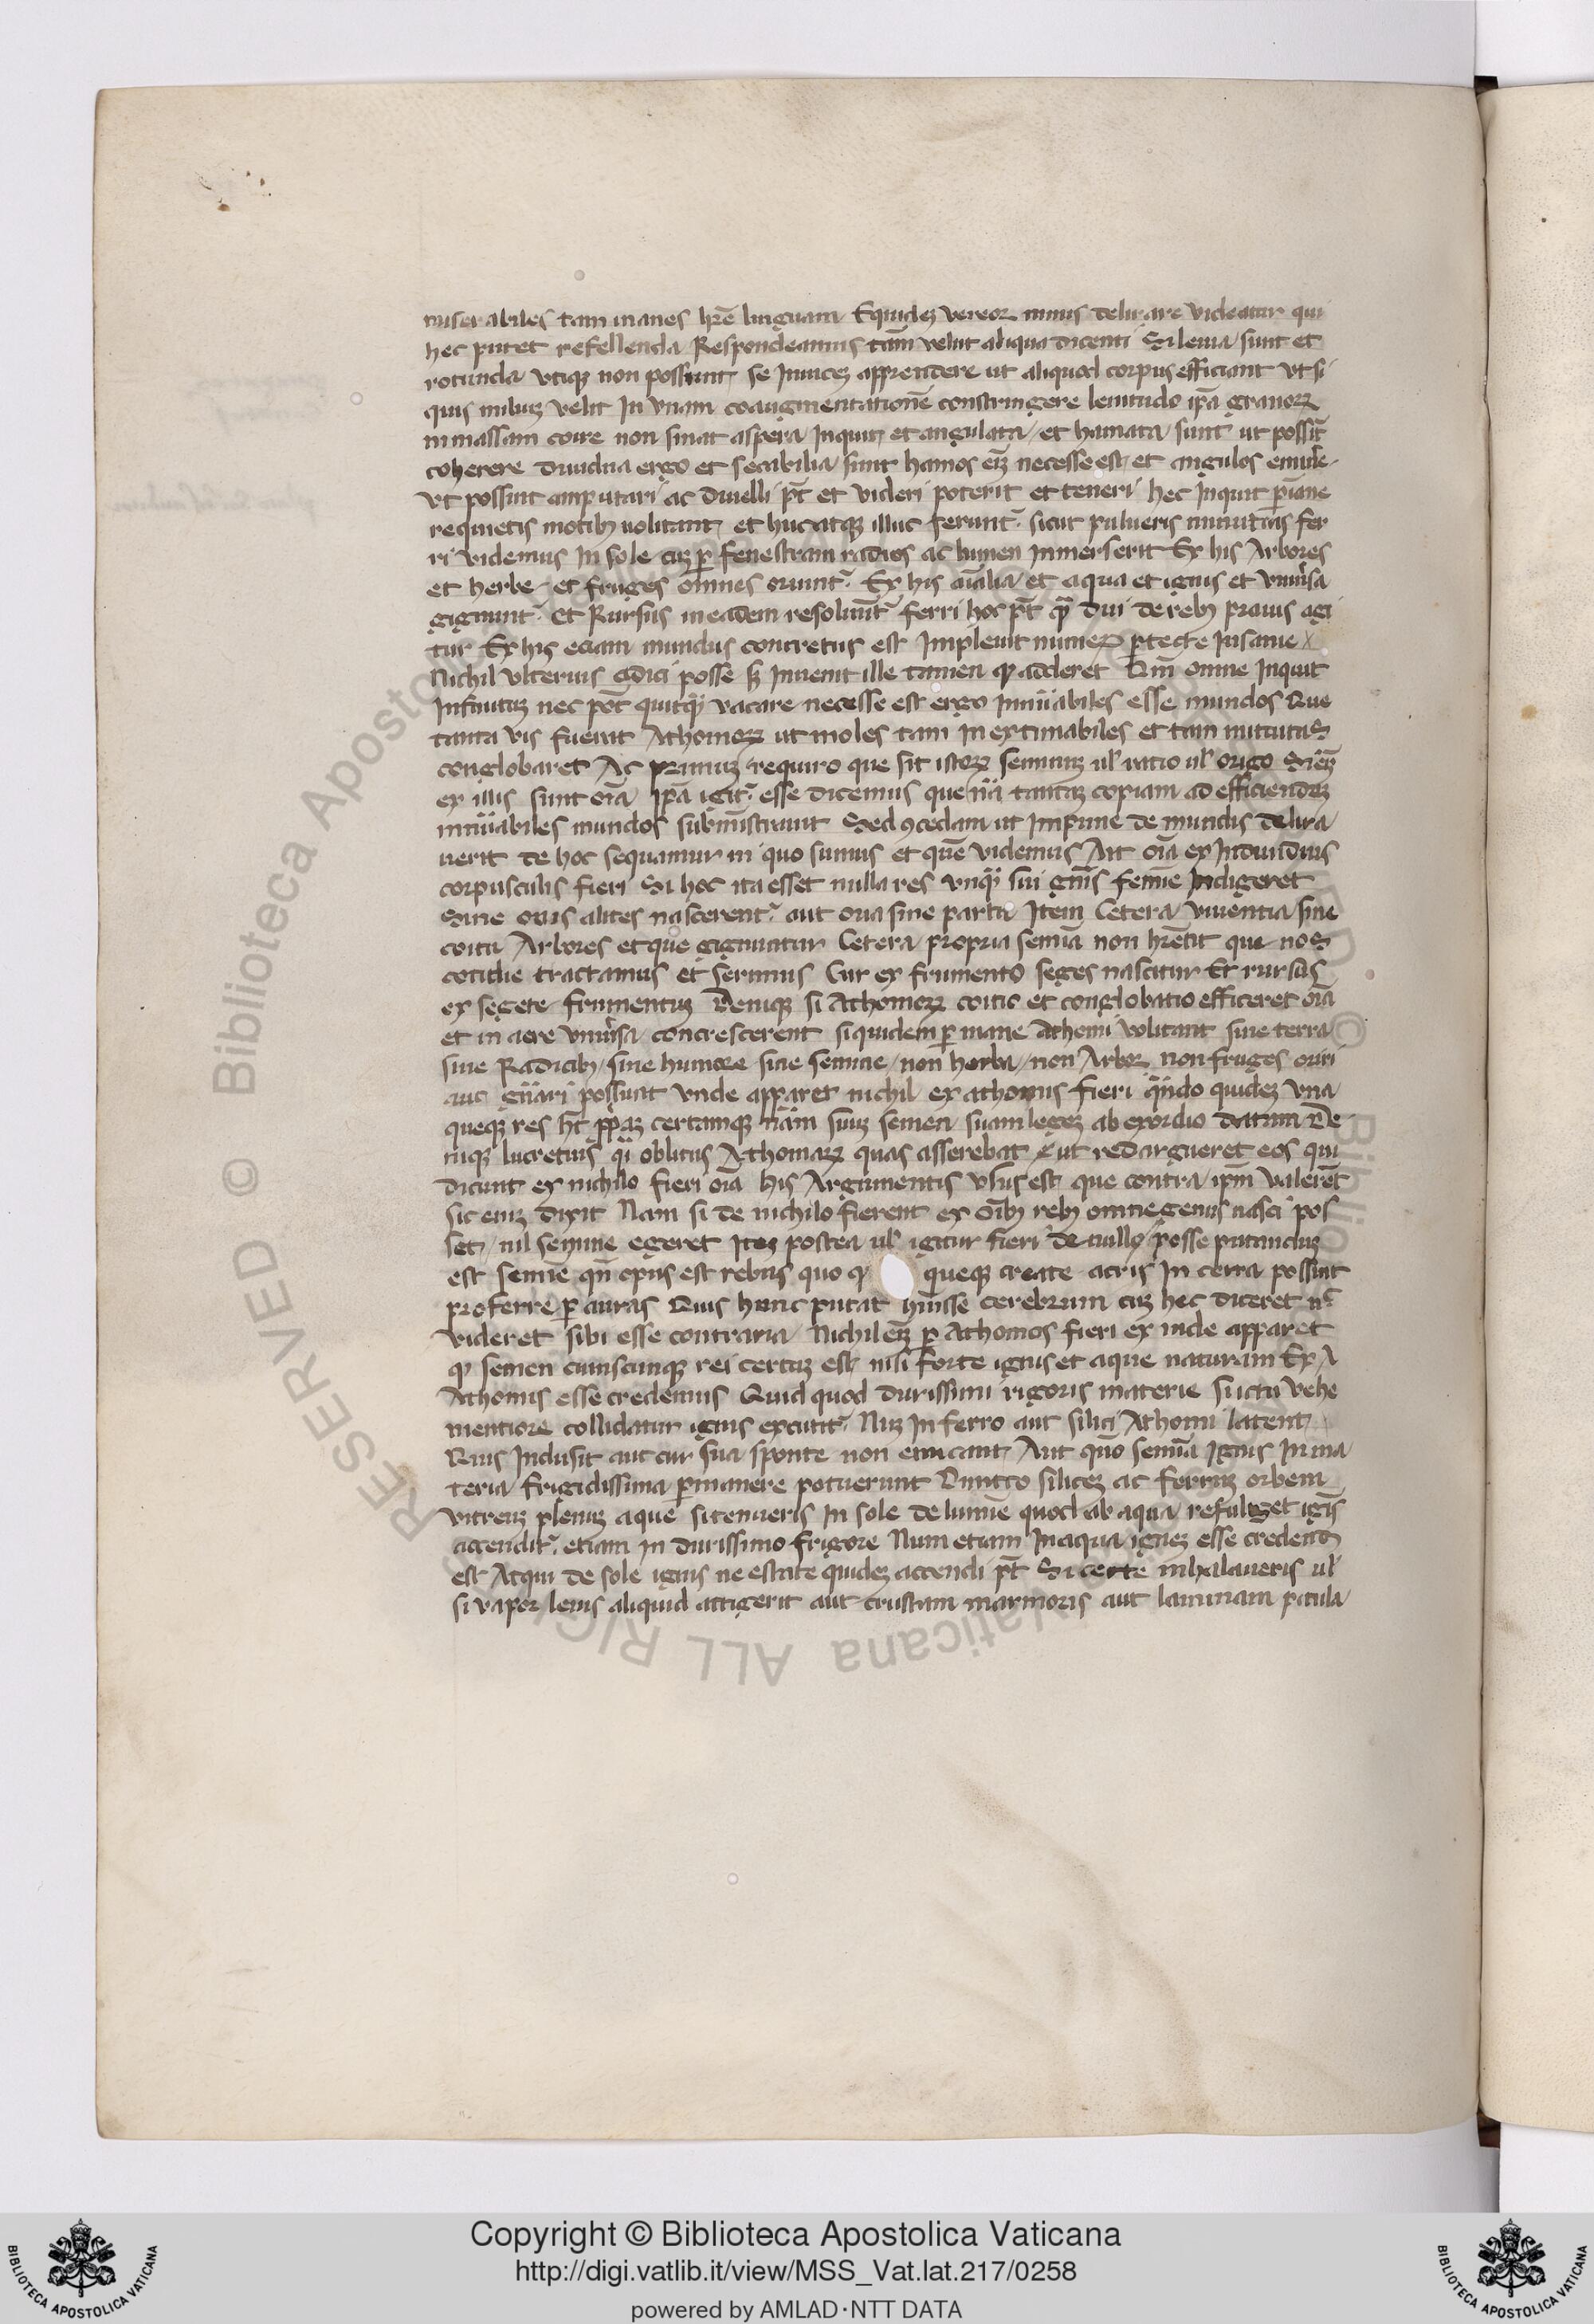 miserabiles tam inanes hr̄e linguam Equidez vereor minus delirare videatur qui
hec putet refellenda Respondeamus tam̄ velut aliqua dicenti Si lenia sunt et
rotunda vtiqz non possunt se Inuicez apprendere ut aliquod corpus efficiant vt si
quis miliuz velit In vnam coaugmentationē constringere lenitudo ip̄a granoꝝ
in massam coire non sinat aspera Inquit et angulata et hamata sunt ut possīt
coherere diuidua ergo et secabilia sunt hamos eīz necesse est et angulos eminere
vt possint amputari ac diuelli pt̄ et videri poterit et teneri hec Inquit p inane
requietis motibȝ uolitant et huc atqz illuc ferunt͛ sicut pulueris minutias fer
ri videmus In sole cuz ꝑ fenestram radios ac lumen Inmerserit Ex his Arbores
et herbe et fruges omnes oriunt͛ Ex his aīalia et aqua et ignis et vniu͛sa
gignunt͛ Et Rursus in eadem resoluūt͛ ferri hoc pt̄ qͣ̄ diu de rebȝ prauis agi
tur Ex his eciam mundus concretus est Impleuit numeꝝ ꝑfecte Insanie
Nichil vlterius dici posse sȝ Inuenit ille tamen qͦ adderet Qm̄ omne Inquit
Infinituz nec pōt quitqͣ̄ vacare necesse est ergo Innūabiles esse mundos Que
tanta vis fuerat Athomoꝝ ut moles tam Inextimabiles et tam minutis
conglobaret Ac primuz requiro que sit istoꝝ seminuz ul͛ ratio ul͛ origo Si eīz
ex illis sunt oīa Ip̄a igit͛ esse dicemus que nā tantaz copiam ad efficiendoz
innūabiles mundos subministrauit Sed ꝯcedam ut Impune de mundis delira
uerit de hoc sequamur in quo sumus et quē videmus Ait oīa ex Indiuiduis
corpusculis fieri Si hoc ita esset nulla res vnqͣ̄ sui gn̄is semīe Indigeret
Sine ouis alites nascerent͛ aut oua sine partu Item Cetera viuentia sine
coitu Arbores et que gignuntur Cetera propria semīa non hrēnt que nos
cotidie tractamus et serimus Cur ex frumento seges nascitur Et rursus
ex segete frumentuz Deniqz si Athomoꝝ coitio et conglobatio efficeret oīa
et in aere vniu͛sa concrescerent siquidem ꝑ inane Athomi volitant sine terra
sine Radicibȝ sine humore sine semine non herba non Arboꝝ non fruges oriri
aut gn̄ari possunt vnde apparet nichil ex athomis fieri qn̄do quidez vna
queqz res ht̄ ꝓpͥaz certamqz nām suuz semen suam legez ab exordio datam De
niqz lucretius qͣi oblitus Athomaꝝ quas asserebat ut redargueret eos qui
dicunt ex nichilo fieri oīa his Argumentis vsus est que contra ip̄m valerēt
sic enīz dixit Nam si de nichilo fierent ex oībȝ rebȝ omne genus nasci pos
set nil semine egeret Itez postea ul͛ igitur fieri de nullo posse putanduz
est semīe qn̄ opus est rebus quo qͦ queqz create aeris In cerra possint
proferre ꝑ auras Quis hunc putat hūisse cerebrum cuz hec diceret nͨ
videret sibi esse contraria Nichil eīz ꝑ Athomos fieri ex inde apparet
qͦ semen cuiuscunqz rei certuz est nisi forte ignis et aque naturam Ex A
Athomis esse credemus Quid quod durissimi rigoris materie si ictu vehe
mentiore collidatur ignis excutit͛ Nuz In ferro aut silici Athomi latent
Quis Inclusit aut cur sua sponte non emicant Aut quō semīa Ignis In ma
teria frigidissima ꝑmanere potuerunt Dimitto silicez ac ferruz orbem
vitreuz plenuz aque si tenueris In sole de lumīe quod ab aqua refulget ignis
accendit͛ etiam in durissimo frigore Num etiam In aqua ignez esse credenduz
est Atqui de sole ignis ne estate quidez accendi pt̄ Si certe inhalaueris ul͛
si vapor lenis aliquid attigerit aut crustam marmoris aut laminam patula
Copyright © Biblioteca Apostolica Vaticana
http://digi.vatlib.it/view/MSS_Vat.lat.217/0258
powered by AMLAD·NTT DATA